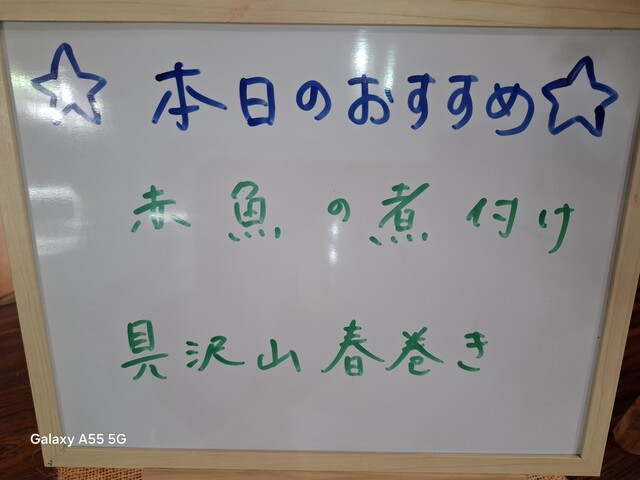 ☆ 本日のおすすめ ☆
赤魚の煮付け
具沢山春巻き
Galaxy A55 5G